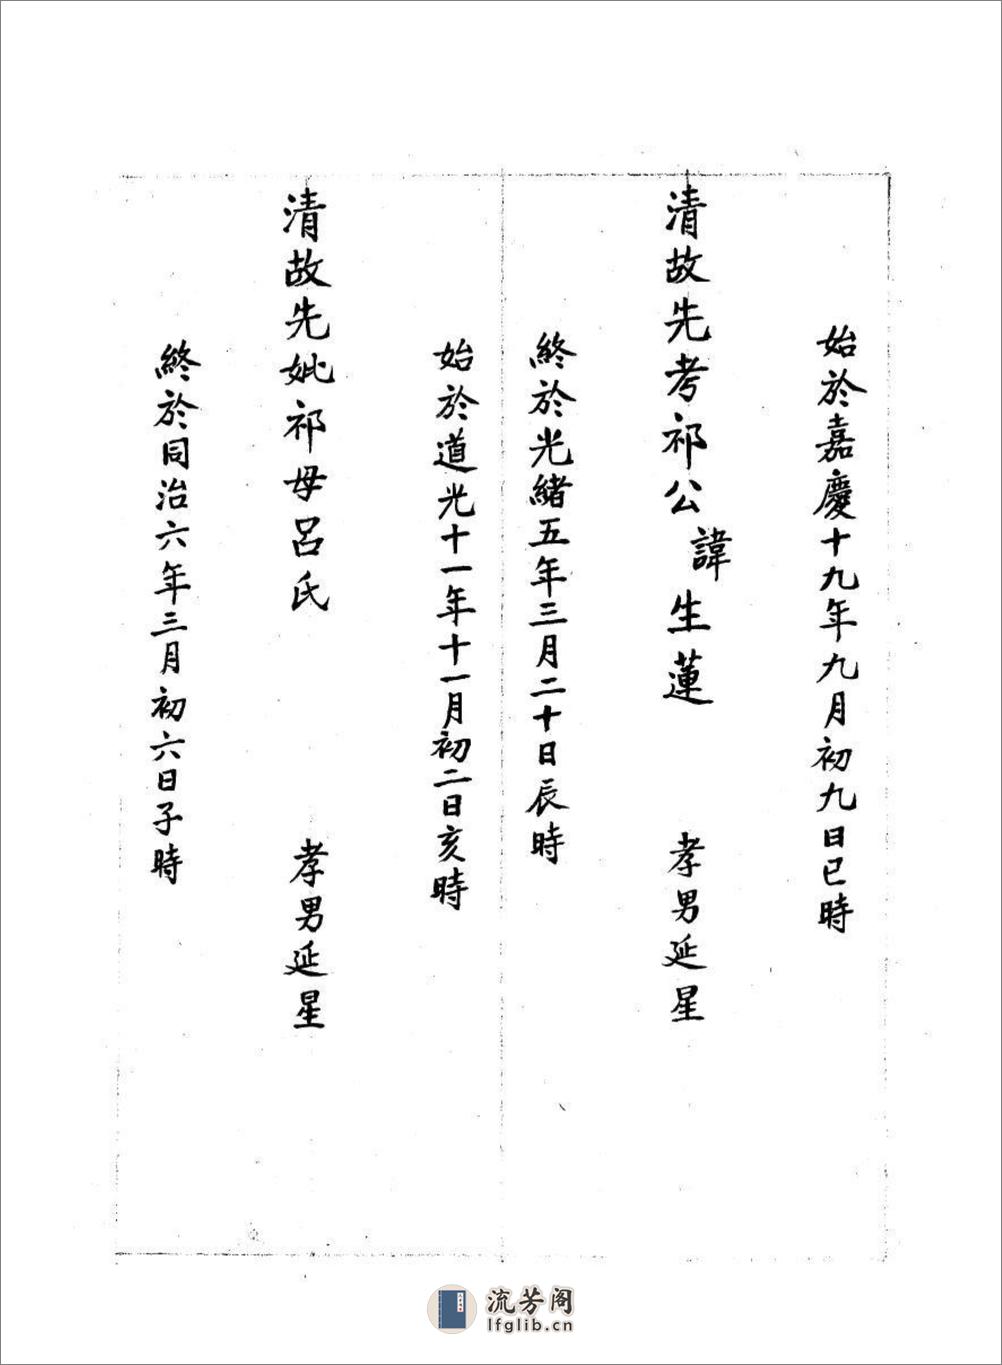 始於嘉慶十九年九月初九日巳時
清故先考祁公諱生蓮 孝男延星
終於光緒五年三月二十日辰時
始於道光十一年十一月初二日亥時
清故先妣祁母呂氏 孝男延星
終於同治六年三月初六日子時
流芳阁
lfglib.cn